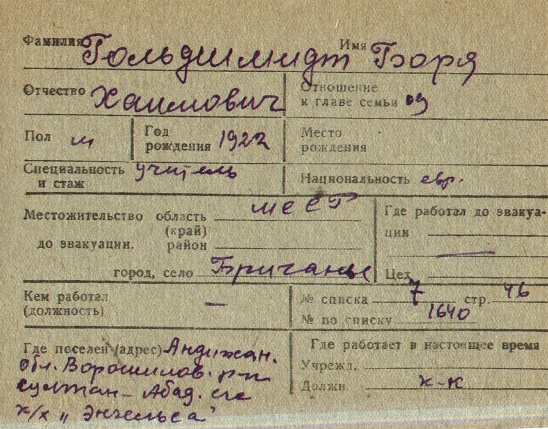 Фамилия Гольдшмидт Имя Боря
Отчество Хаимович Отношение к главе семьи од
Пол м Год рождения 1922 Место рождения
Специальность и стаж учитель Национальность евр.
Местожительство до эвакуации. область (край) МССР
район —
город, село Бричаны
Где работал до эвакуации —
Цех
Кем работал (должность) —
№ списка 7 стр. 46
№ по списку 1640
Где поселен (адрес) Андижан.
обл. Ворошилов. р-н
султан-Абад. с/с
к/х „Энгельса"
Где работает в настоящее время
Учрежд.
Должн. к-к